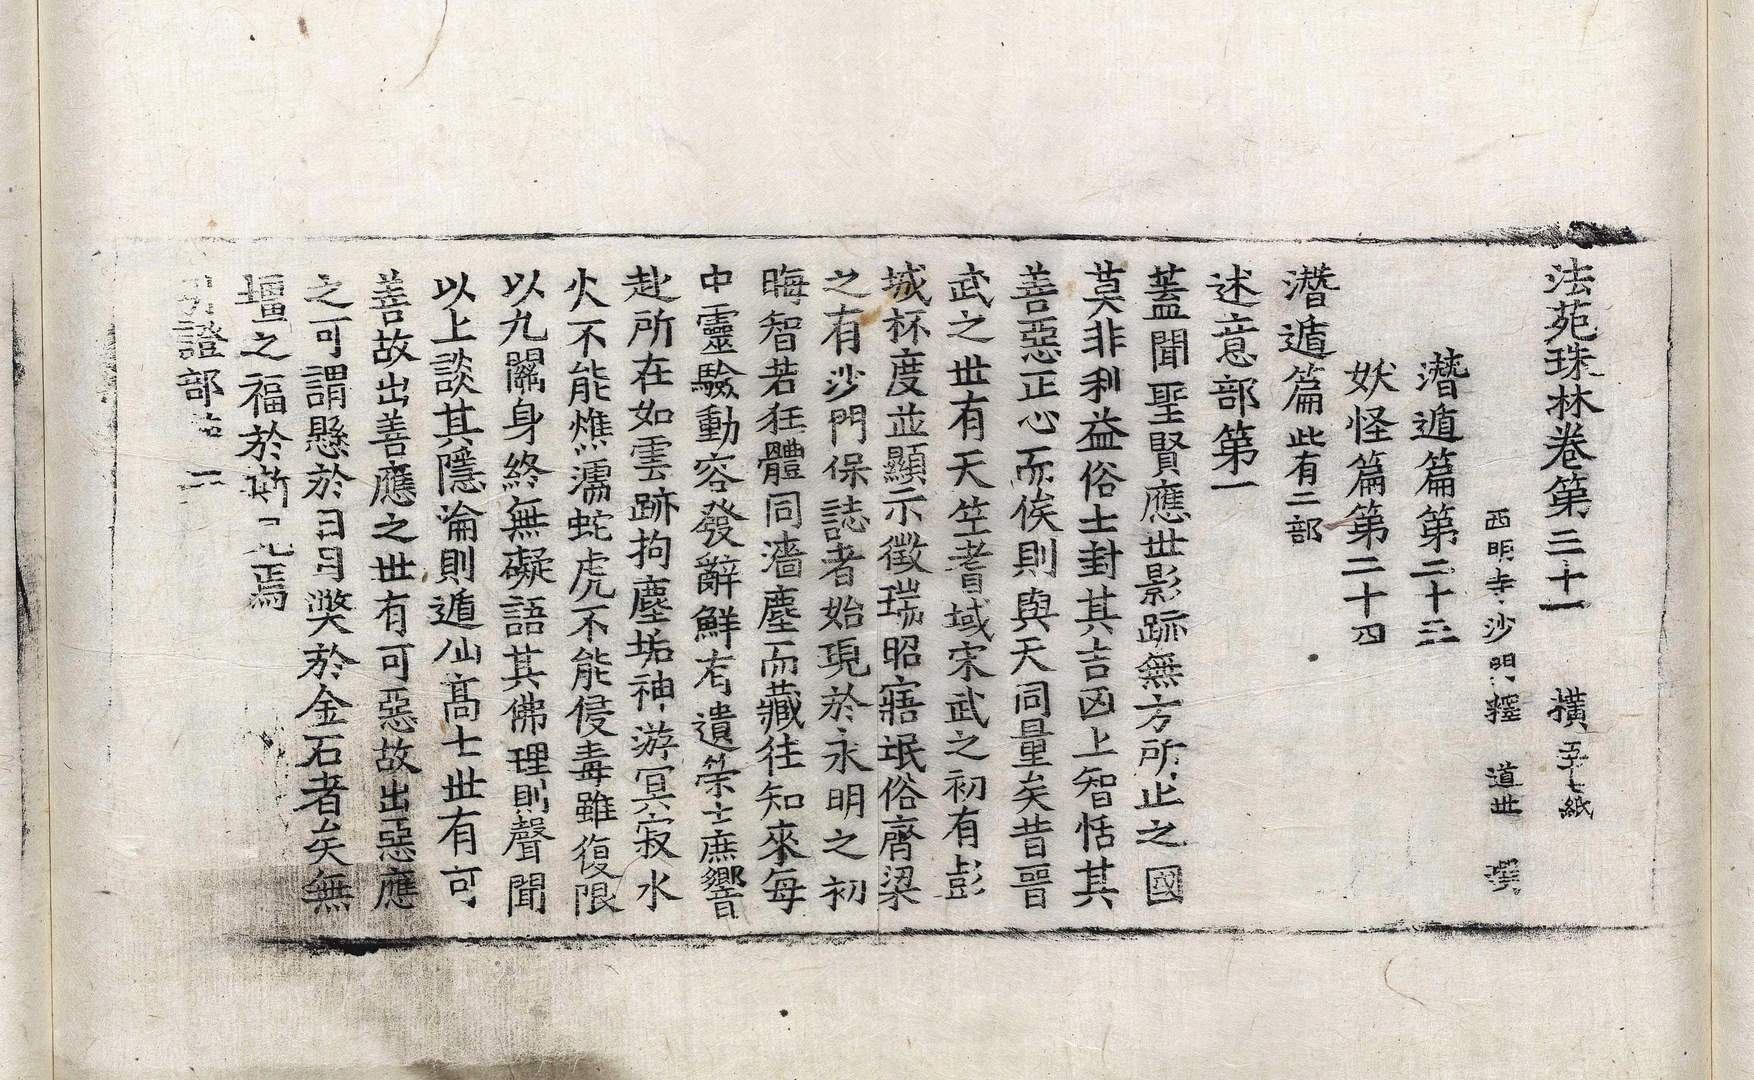 法苑珠林卷第三十一 橫 五十七紙
西明寺沙門釋 道世 撰
潛遁篇第二十三
妖怪篇第二十四
潛遁篇 此有二部
述意部第一
蓋聞聖賢應世影跡無方所止之國
莫非利益俗士封其吉凶上智恬其
善惡正心而俟則與天同量矣昔晉
武之世有天竺耆域宋武之初有彭
城杯度並顯示徵瑞昭寤氓俗齊梁
之有沙門保誌者始現於永明之初
晦智若狂體同濇塵而藏往知來每
中靈驗動容發辭鮮有遺筞士庶響
赴所在如雲跡拘塵垢神游冥寂水
火不能燋濡蛇虎不能侵毒雖復限
以九關身終無礙語其佛理則聲聞
以上談其隱淪則遁仙高士世有可
善故出善應之世有可惡故出惡應
之可謂懸於日月獘於金石者矣無
壃之福於斯 焉
引證部 二